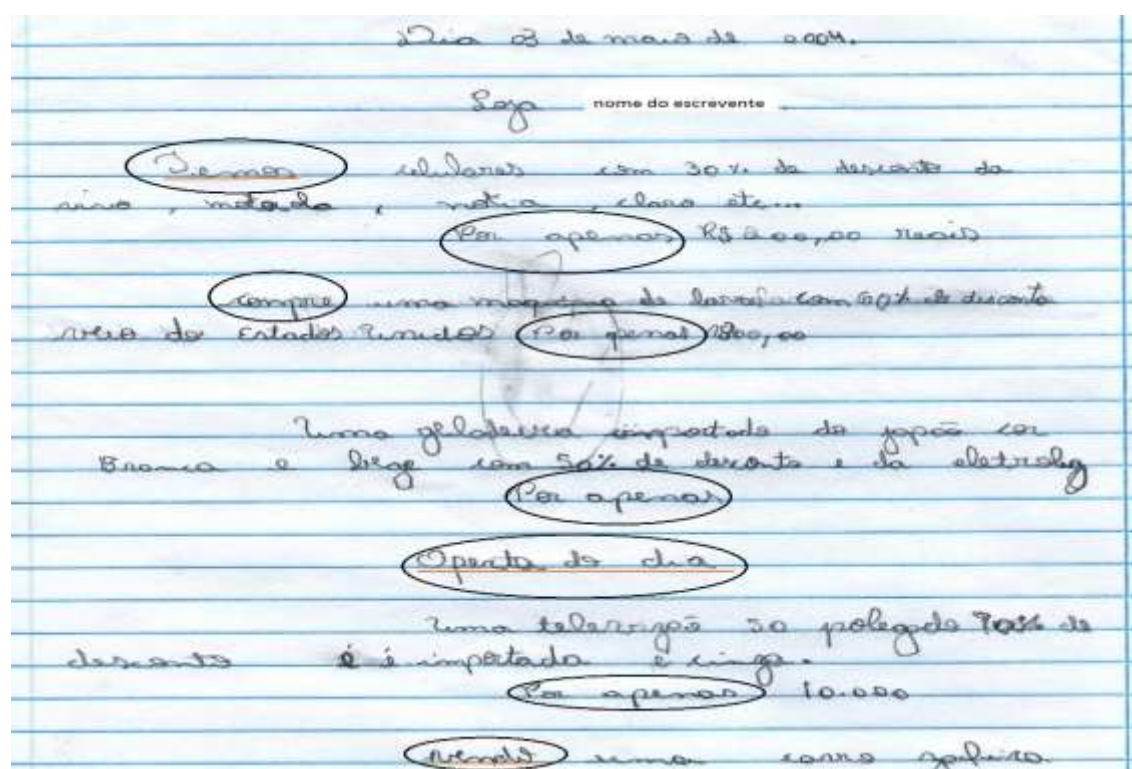 Dia 03 de maio de 2004.
Loja nome do escrevente
Temos celulares com 30% de desconto da
vivo, , nokia, claro etc...
Por apenas R$ 200,00 reais
compre uma maquina de lavar com 60% de desconto
veio do Estados Unidos Por apenas 1800,00
Uma geladeira importada do japão cor
Branca e bege com 50% de desconto e da
Por apenas
Operta do dia
Uma televizão 50 polegada 70% de
desconto é é importada e cinza.
Por apenas 10.000
uma carro